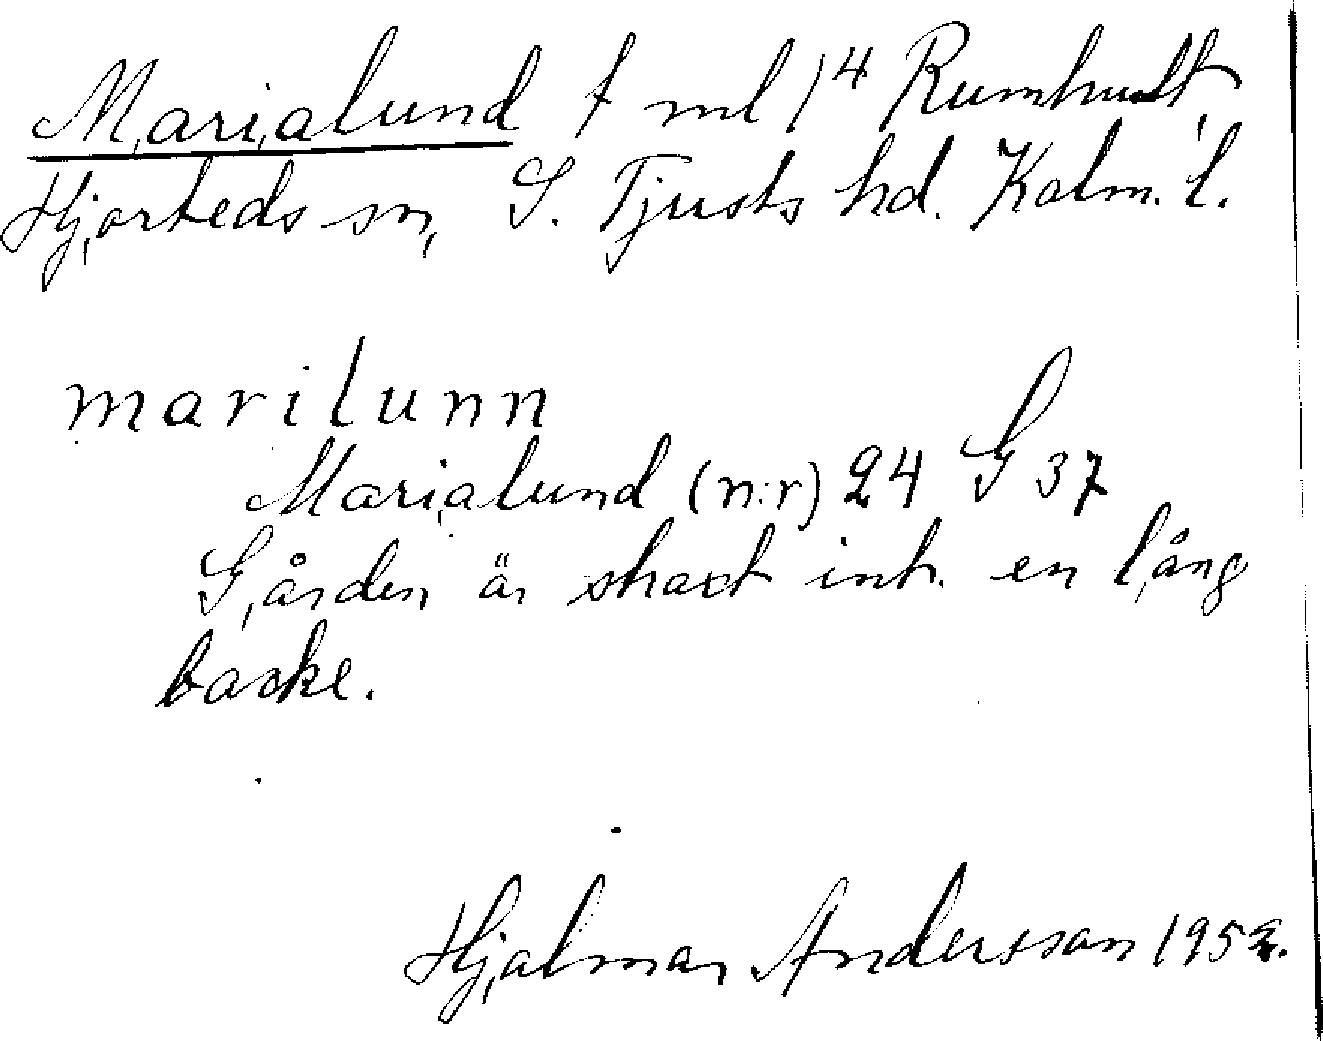 Marialund f ml 1⁴ Rumhult,
Hjorteds sn, S. Tjusts hd. Kalm. l.
marilunn
Marialund (n:r) 24 G 37
Gården är strax int. en lång
backe.
Hjalmar Andersson 1952.